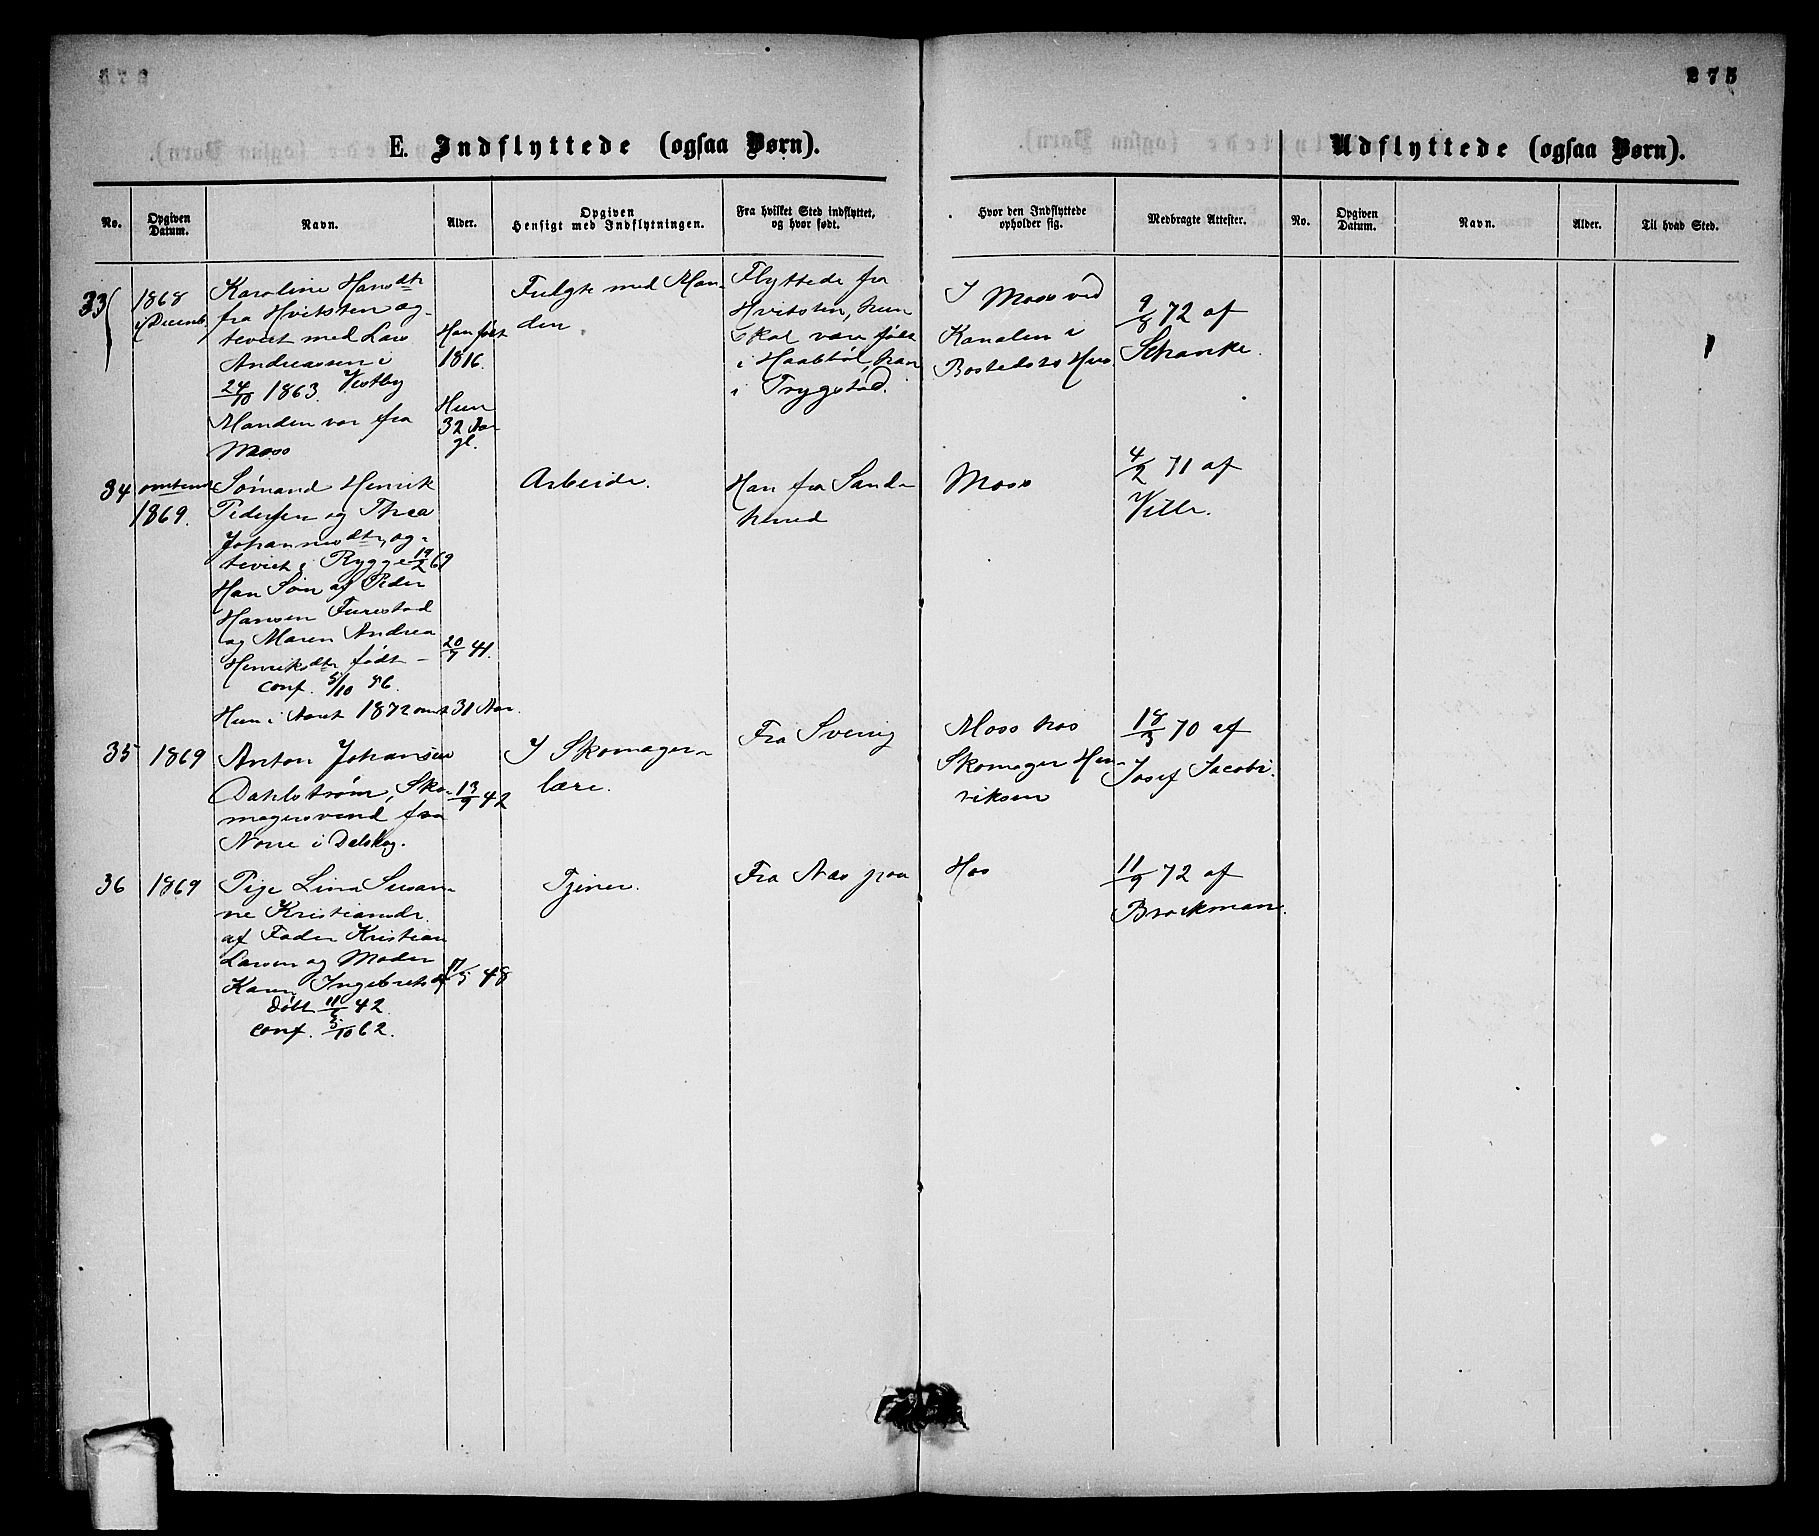 275
E. Indflyttede (ogsaa Børn).
Udflyttede (ogsaa Børn).
No.
Opgiven Datum.
Navn.
Alder.
Opgiven Hensigt med Indflytningen.
Fra hvilket Sted indflyttet, og hvor født.
Hvor den Indflyttede opholder sig.
Medbragte Attester.
No.
Opgiven Datum.
Navn.
Alder.
Til hvad Sted.
33
1868
i Decemb.
Karoline Hansdtr
fra Hvitsten og-
teviet med Lars
Andreassen i
24/10 1863. Vestby
Manden var fra
Moss
Han født
1816.
Hun
32 Aar
gl.
Fulgte med Man-
den
Flyttede fra
Hvitsten, hun
skal være født
i Haabøl, han
i Trygstad.
I Moss ved
Kanalen i
Hus.
9/8 72 af
Schanke.
34
omtrent
1869.
Sømand Henrik
Pedersen og Thea
Johannesdtr, æg-
teviet i Rygge 19/2 69
Han Søn af Peder
Hansen Furestad
og Maren Andrea
Henriksdtr født -
conf. 5/10 56.
Hun i Aaret 1872 omt 31 Aar.
20/7 41.
Arbeide.
Han fra Sand-
herred
Moss
4/2 71 af
35
1869
Anton Johansen
Dahlstrøm, Sko-
magersvend fra
i Delskog.
13/9 42
I Skomager-
lære.
Fra Sverig
Moss hos
Skomager Hen-
riksen
18/3 70 af
Josef Jacobi.
36
1869
Pige Lina Susan-
ne Kristiansdr.
af Fader Kristian
Larsen og Moder
Karen Ingebretsdtr
døbt 11/6 42.
conf. 5/10 62.
17/5 48
Tjener.
Fra Næs paa
Hos
11/9 72 af
Brockman.